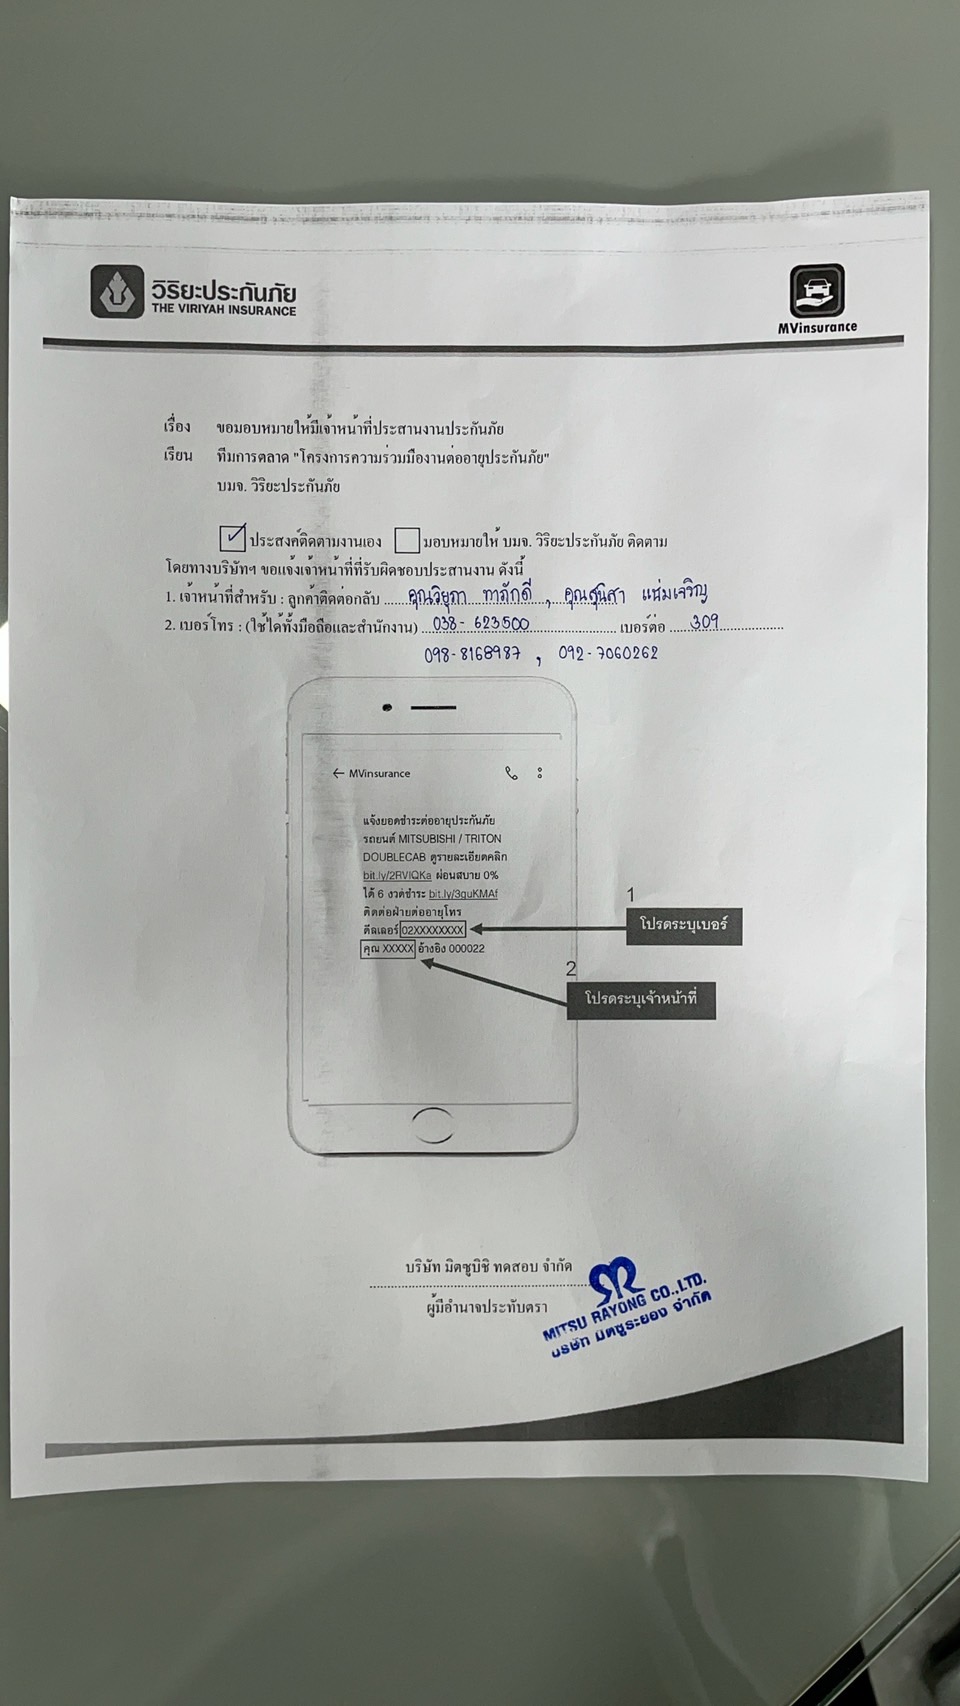 วิริยะประกันภัย
THE VIRIYAH INSURANCE
MVinsurance
เรื่อง ขอมอบหมายให้มีเจ้าหน้าที่ประสานงานประกันภัย
เรียน ทีมการตลาด "โครงการความร่วมมืองานต่ออายุประกันภัย"
บมจ. วิริยะประกันภัย
ประสงค์ติดตามงานเอง มอบหมายให้ บมจ. วิริยะประกันภัย ติดตาม
โดยทางบริษัทฯ ขอแจ้งเจ้าหน้าที่ที่รับผิดชอบประสานงาน ดังนี้
1. เจ้าหน้าที่สำหรับ : ลูกค้าติดต่อกลับ คุณวิยุภา ทาภักดี , คุณสุนิสา แช่มเจริญ
2. เบอร์โทร : (ใช้ได้ทั้งมือถือและสำนักงาน) 038-623500 เบอร์ต่อ 309
098-8168987 , 092-7060262
MVinsurance
แจ้งยอดชำระต่ออายุประกันภัย
รถยนต์ MITSUBISHI / TRITON
DOUBLECAB ดูรายละเอียดคลิก
bit.ly/2RVIQKa ผ่อนสบาย 0%
ได้ 6 งวดชำระ bit.ly/3guKMAf
ติดต่อฝ่ายต่ออายุโทร
ดีลเลอร์ 02XXXXXXXX
คุณ XXXXX อ้างอิง 000022
1
โปรดระบุเบอร์
2
โปรดระบุเจ้าหน้าที่
บริษัท มิตซูบิชิ ทดสอบ จำกัด
ผู้มีอำนาจประทับตรา
MITSU RAYONG CO.,LTD.
บริษัท มิตซูระยอง จำกัด